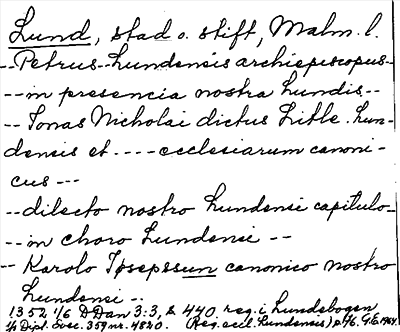 Lund, stad o. stift, Malm. l.
--Petrus--Lundensis archiepiscopus--
--in presencia nostra Lundis--
--Jonas Nicholai dictus Litle. Lun-
densis et ---- ecclesiarum canoni-
cus---
--dilecto nostro Lundensi capitulo--
--in choro Lundensi--
--Karolo Ipsepssun canonico nostro
Lundensi--
1352 1/6 DDan 3:3, s 440. reg. i Lundebogen
Dipl. Svec. 359 nr. 4820. Reg. eccl. Lundensis) p. 46. G.E. 1964